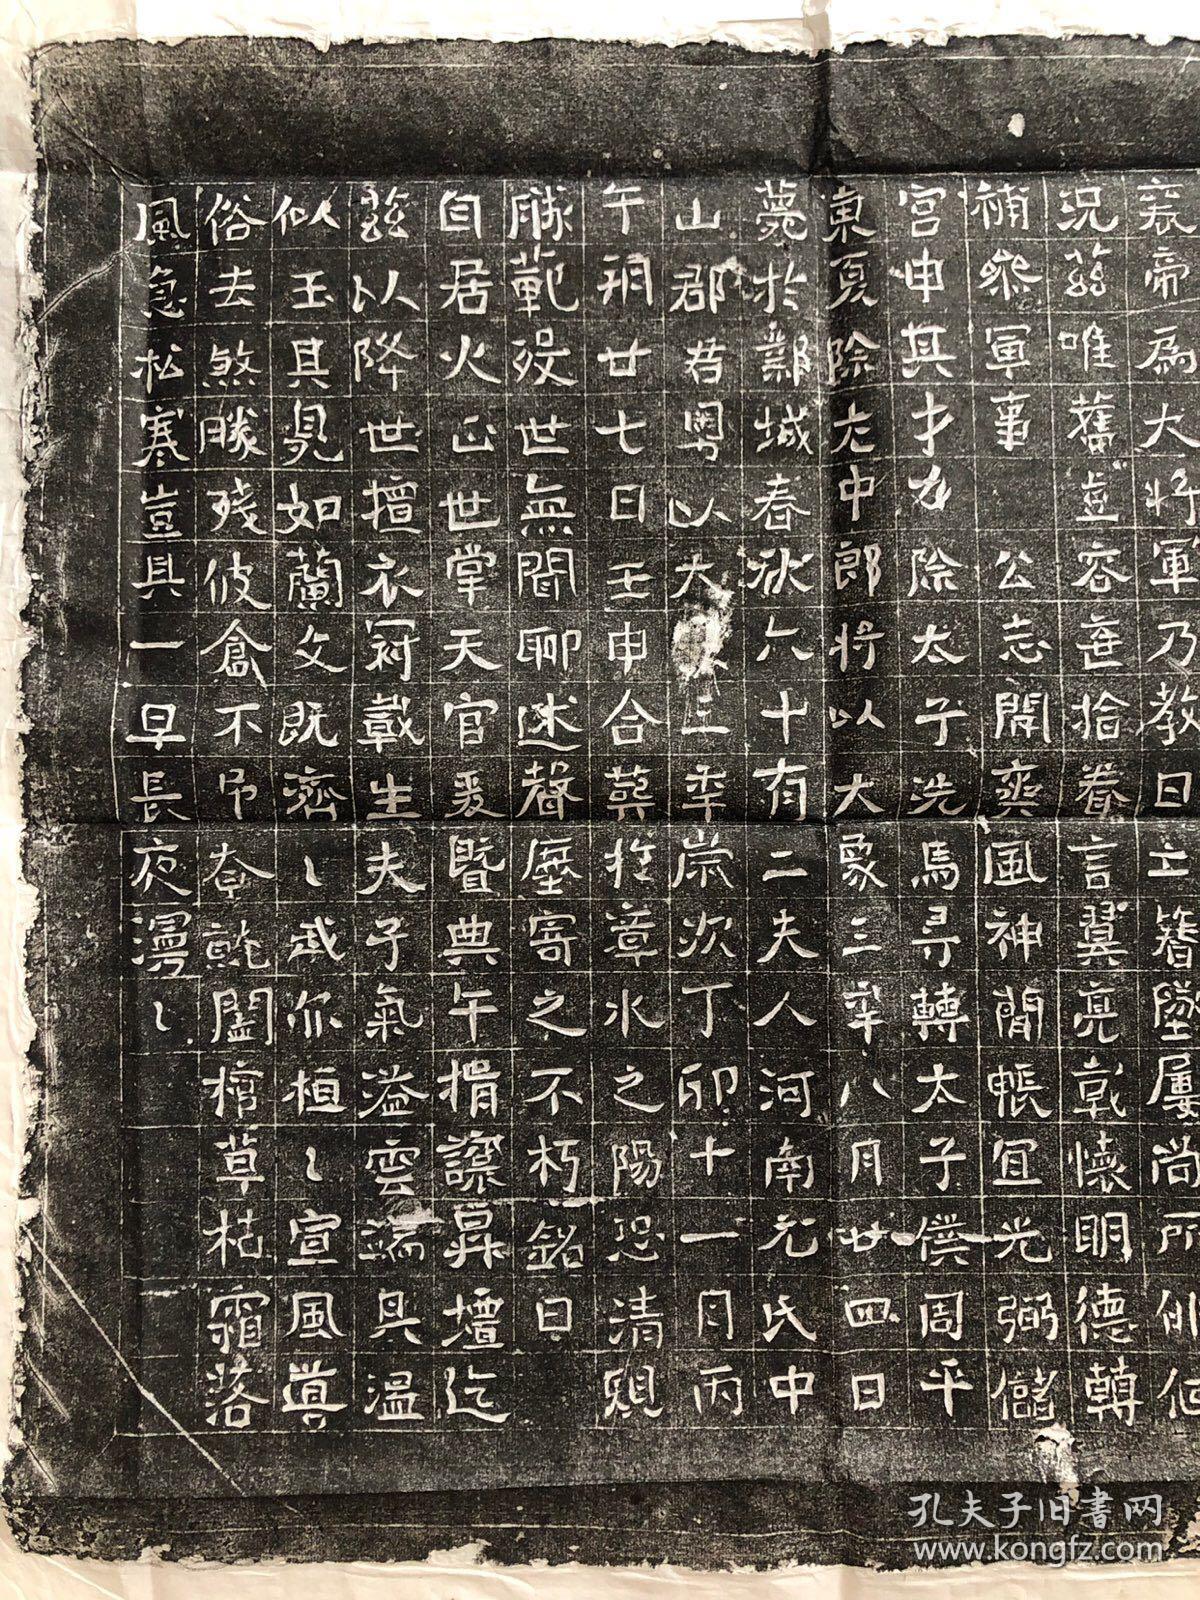 衰帝爲大將軍乃教曰士簪墜屨尚所
況茲唯舊豈容無拾眷言翼亮彰懷明德轉
補參軍事 公志閑爽風神蕳帳宜光弼儲
宮申其才力除太子洗馬尋轉太子僕周平
東夏除左中郎將以大象三年八月廿四日
薨於鄴城春秋六十有二夫人河南元氏中
山郡君粵以大三年歲次丁卯十一月丙
午朔廿七日壬申合葬於章水之陽恐清規
勝範歿世無聞聊述聲塵寄之不朽銘曰
自居火正世掌天官爰暨典午揖讓昇壇迄
茲以降世擅衣冠載生夫子氣溢雲端具溫
似玉其臭如蘭文既濟〻武亦桓〻宣風導
俗去煞勝殘彼倉不弔奄乾闔棺草枯霜落
風急松寒豈其一旦長夜漫〻
孔夫子旧書网
www.kongfz.com